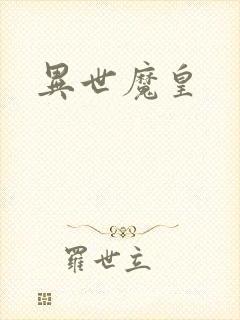 異世魔皇
羅世立